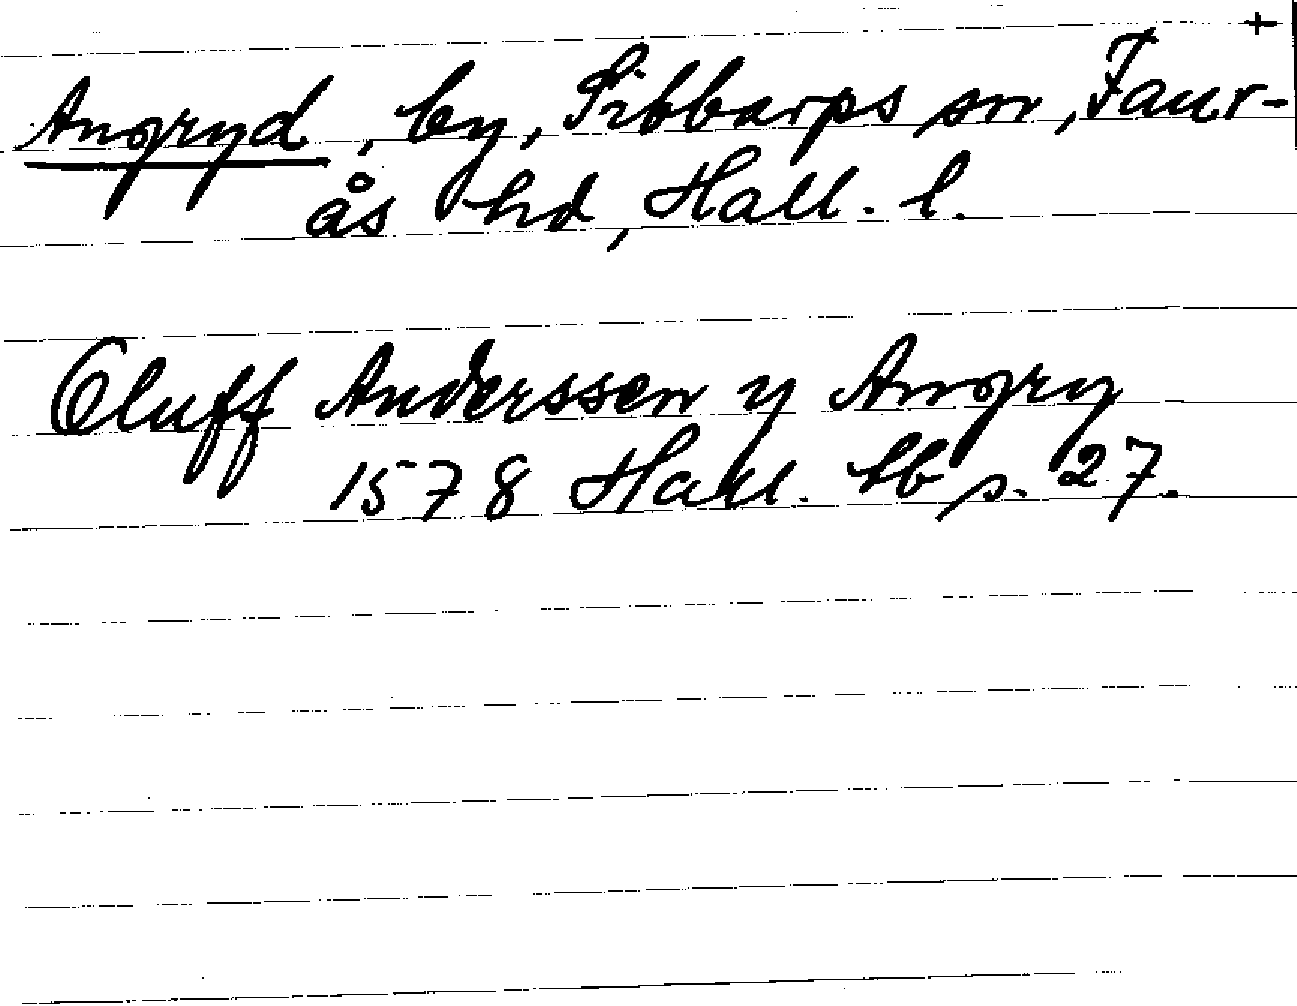 +
Angryd, by, Sibbarps sn, Faur-
ås hd, Hall. l.
Oluff Anderssen y Angry
1578 Hall. lb s. 27.